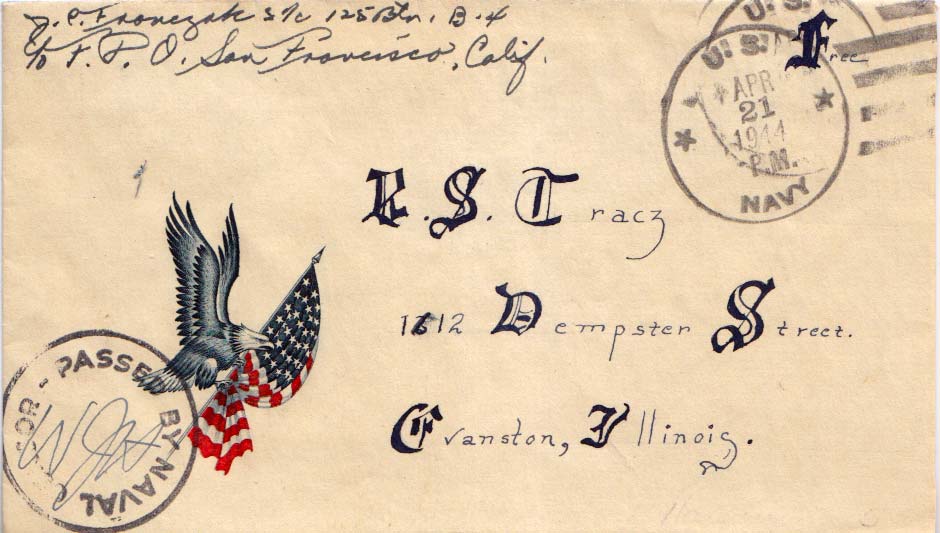 J. P. Fronczak S/c 125 Btn. B-4
c/o F. P. O. San Francisco, Calif.
Free
U. S.
U. S. NAVY
APR
21
1944
P.M.
R. S. Tracz
1612 Dempster Street.
Evanston, Illinois.
PASSED BY NAVAL